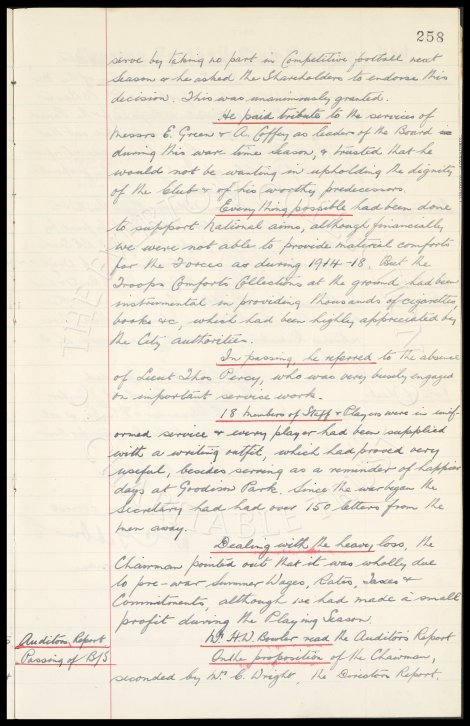 258
serve by taking no part in Competitive football next
Season & he asked the Shareholders to endorse this
decision. This was unanimously granted.
He paid tribute to the services of
Messrs E. Green & A. Coffey as leaders of the Board
during this war time Season, & trusted that he
would not be wanting in upholding the dignity
of the Club & of his worthy predecessors.
Everything possible had been done
to support National aims, although financially
we were not able to provide material comforts
for the Forces as during 1914-18. But the
Troops Comforts Collections at the ground had been
instrumental in providing thousands of cigarettes,
books &c, which had been highly appreciated by
the City Authorities.
In passing, he referred to the absence
of Lieut Thos Percy, who was very busily engaged
on important service work.
18 Members of Staff & Players were in unif-
ormed service & every player had been supplied
with a writing outfit, which had proved very
useful, besides serving as a reminder of happier
days at Goodison Park. Since the war began the
Secretary had had over 150 letters from the
men away.
Dealing with the heavy loss, the
Chairman pointed out that it was wholly due
to pre-war Summer Wages, Rates, Taxes &
Commitments, although we had made a small
profit during the Playing Season.
Auditors Report
Mr. H D Bowler read the Auditors Report
Passing of B/S
On the proposition of the Chairman,
seconded by Mr. C. Wright, the Directors Report,